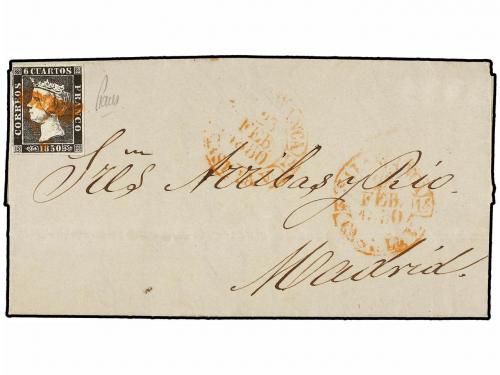 6 CUARTOS
CORREOS
FRANCO
1850
25
FEB
1850
FEB.
1850
Sres Arribas y Rio.
Madrid.